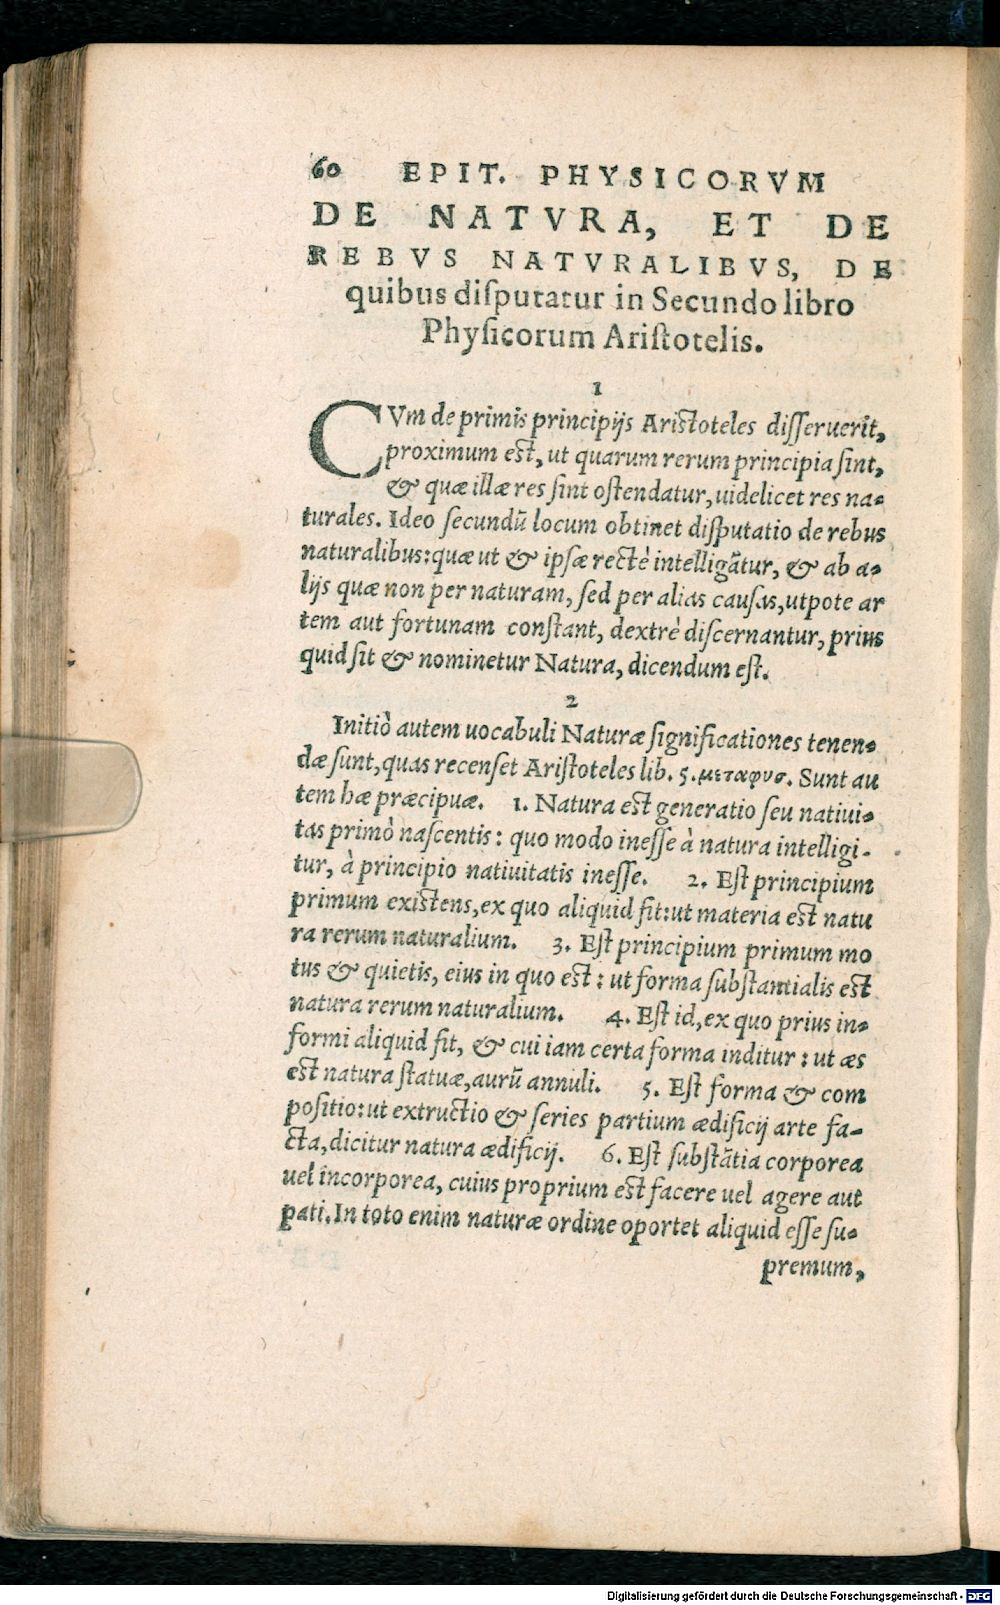 60 EPIT. PHYSICORVM
DE NATVRA, ET DE
REBVS NATVRALIBVS, DE
quibus diſputatur in Secundo libro
Phyſicorum Ariſtotelis.
1
CVm de primis principijs Ariſtoteles diſſeruerit,
proximum eſt, ut quarum rerum principia ſint,
& quæ illæ res ſint oſtendatur, uidelicet res na-
turales. Ideo ſecundũ locum obtinet diſputatio de rebus
naturalibus: quæ ut & ipſæ rectè intelligãtur, & ab a-
lijs quæ non per naturam, ſed per alias cauſas, utpote ar
tem aut fortunam conſtant, dextrè diſcernantur, prius
quid ſit & nominetur Natura, dicendum eſt.
2
Initiò autem uocabuli Naturæ ſignificationes tenen-
dæ ſunt, quas recenſet Ariſtoteles lib. 5. μεταφυσ. Sunt au
tem hæ præcipuæ. 1. Natura eſt generatio ſeu natiui-
tas primò naſcentis: quo modo ineſſe à natura intelligi-
tur, à principio natiuitatis ineſſe. 2. Eſt principium
primum exiſtens, ex quo aliquid fit: ut materia eſt natu
ra rerum naturalium. 3. Eſt principium primum mo
tus & quietis, eius in quo eſt: ut forma ſubſtantialis eſt
natura rerum naturalium. 4. Eſt id, ex quo prius in-
formi aliquid fit, & cui iam certa forma inditur: ut æs
eſt natura ſtatuæ, aurũ annuli. 5. Eſt forma & com
poſitio: ut extructio & ſeries partium ædificij arte fa-
cta, dicitur natura ædificij. 6. Eſt ſubſtãtia corporea
uel incorporea, cuius proprium eſt facere uel agere aut
pati. In toto enim naturæ ordine oportet aliquid eſſe ſu-
premum,
Digitalisierung gefördert durch die Deutsche Forschungsgemeinschaft - DFG